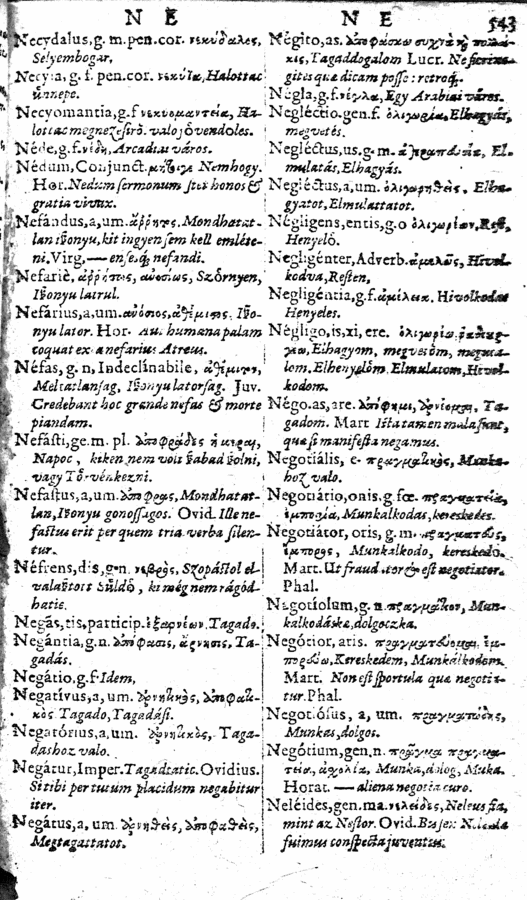 N E
N E
543
Necydalus, g. m. pen. cor. νεκύδαλος,
Selyembogar.
g. f. pen. cor. νεκυία, Halottac
ünnepe.
Necyomantia, g. f νεκυομαντεία, Ha-
lottac valo jövendoles.
Néde, g. f. νέδη, Arcadias város.
Nédum, Conjunct. Nemhogy.
Hor. Nedum sermonum stet honos &
gratia vivax.
Nefándus, a, um. ἄῤῥητος. Mondhatat-
lan iszonyu, kit ingyen sem kell emlite-
ni. Virg, — nefandi.
Nefariè, ἀῤῥήτως, Szörnyen,
Iszonyu
Nefárius, a, um. ἀνόσιος, ἀθέμιτος. Iszo-
nyu lator. Hor. Aut humana palam
coquat exta nefarius Atreus.
Néfas, g. n, Indeclinabile,
Meltatlansag, Iszonyu latorsag. Juv.
Credebant hoc grande nefas & morte
piandum.
Nefásti, ge. m. pl. ἀποφράδες
Napoc, kiken nem volt szabad szolni,
vagy
Nefastus, a, um. ἀποφρὰς, Mondhatat-
lan, Iszonyu gonoszságos. Ovid. Ille ne-
fastus erit per quem tria verba silen-
tur.
Néfrens, dis, g. n. Szopástol el
valasztott Süldö, ki még nem rágód-
hatic.
Negās, tis, particip. ἐξαρνέων. Tagado.
Negántia, g. n. ἀπόφασις, ἄρνησις, Ta-
gadás.
Negátio, g. f Idem,
Negatívus, a, um. ἀρνητικὸς, ἀποφατι-
κὸς Tagado, Tagadási.
Negatórius, a, um. ἀρνητικὸς, Taga-
dashoz valo.
Negátur, Imper. Tagadtatic. Ovidius.
Si tibi per tutum placidum negabitur
iter.
Negátus, a, um. ἀρνηθεὶς, ἀποφαθεὶς,
Megtagattatot.
Négito, as. ἀποφάσκω συχνὰ
Tagaddogalom Lucr.
gites qua dicam posse: retroq.
Négla, g. f. νέγλα, Egy Arabiai város.
Negléctio. gen. f. ὀλιγωρία, Elhagyás,
megvetés.
Negléctus, us. g. m. El-
mulatás, Elhagyás.
Negléctus, a, um. ὀλιγωρηθεὶς. Elha-
gyatot, Elmulattatot.
Négligens, entis, g. o ὀλιγωρέων, Rest,
Henyelö.
Negligénter, Adverb. ἀμελῶς, Hivol-
kodva, Resten,
Negligéntia, g. f. ἀμέλεια. Hivolkodas
Henyeles.
Négligo, is, xi, ere. ὀλιγωρέω,
Elhagyom, megvetöm,
lom. Elhenyelöm. Elmulatom, Hivol-
kodom.
Négo. as, are. ἀπόφημι, Ta-
gadom. Mart Ista tamen mala sunt,
quasi manifesta negamus.
Negotiális, e. πραγματικὸς,
hoz valo.
Negotiátio, onis. g. fœ. πραγματεία,
ἐμπορία, Munkalkodas, kereskedes.
Negotiátor, oris, g. m.
ἔμπορος, Munkalkodo, kereskedö.
Mart. Ut fraudator est negotiator.
Phal.
Negotíolum, g. n. Mun-
kalkodáska, dolgoczka.
Negótior, aris. πραγματεύομαι,
Kereskedem, Munkalkodom
Mart. Non est sportula quæ negotia-
tur. Phal.
Negotiósus, a, um. πραγματώδης,
Munkas, dolgos.
Negótium, gen. n. πρᾶγμα
ἀσχολία, Munka, dolog, Muka.
Horat. — aliena negotia curo.
Neléides, gen. ma. νελείδες, Neleus fia,
mint az Nestor. Ovid.
fuimus conspecta juventus.